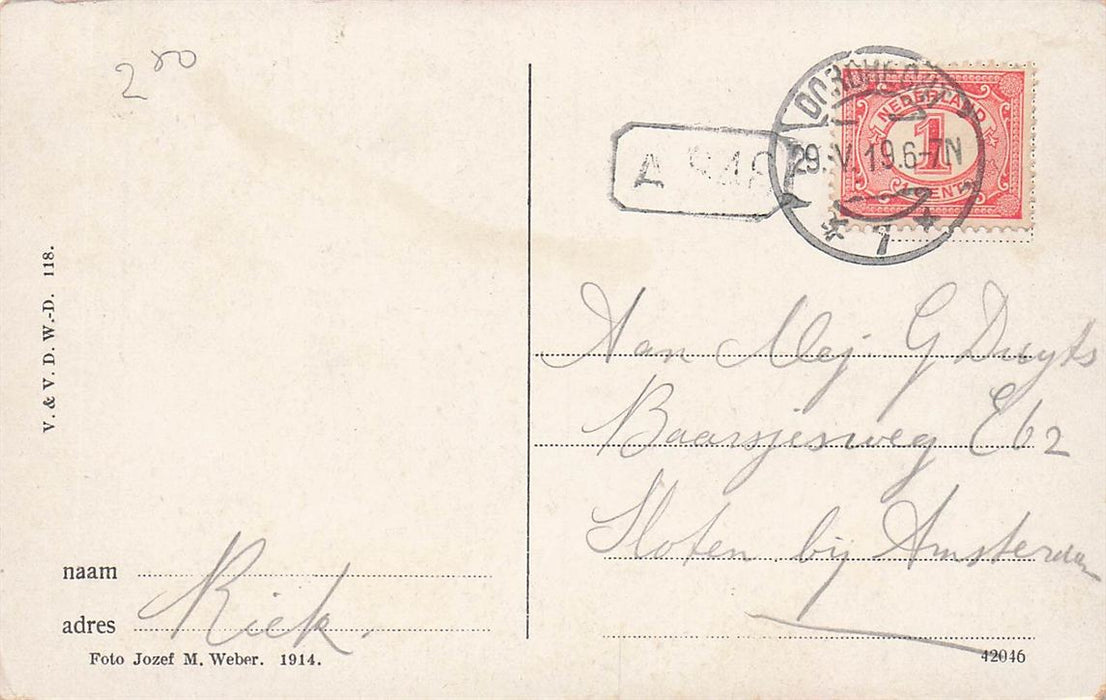 2 80
V. & V. D. W.-D. 118.
DORDRECHT
29.V.19.6-7N
1
NEDERLAND
1
1 CENT
Aan Mej. G Duyts
Baarsjesweg E62
Sloten bij Amsterdam
naam
adres
Riek.
Foto Jozef M. Weber. 1914.
42046